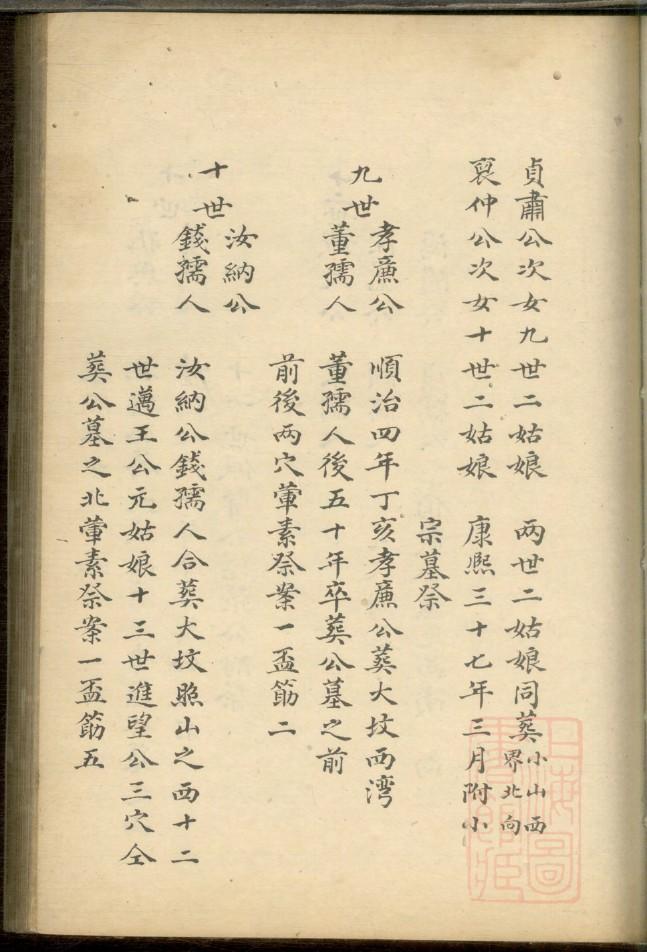 貞肅公次女九世二姑娘　兩世二姑娘同葬小山西界北向
裒仲公次女十世二姑娘　康熙三十七年三月附小
宗墓祭
九世
孝廉公
董孺人
順治四年丁亥孝廉公葬大坟西湾
董孺人後五十年卒葬公墓之前
前後两穴葷素祭案一盃筯二
十世
汝納公
錢孺人
汝納公錢孺人合葬大坟照山之西十二
世邁王公元姑娘十三世進望公三穴仝
葬公墓之北葷素祭案一盃筯五
上海圖
書館藏